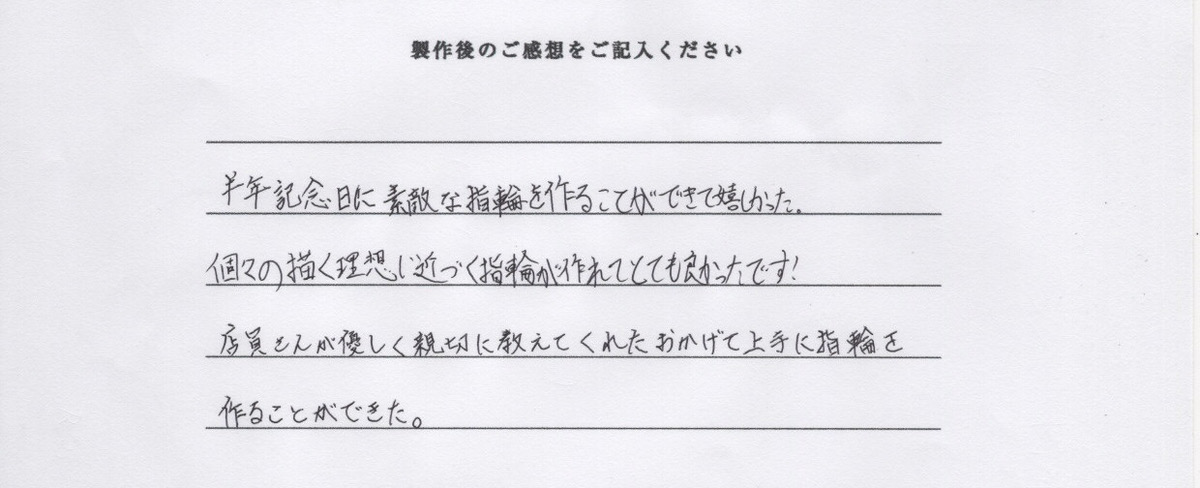 製作後のご感想をご記入ください
半年記念日に素敵な指輪を作ることができて嬉しかった。
個々の描く理想に近づく指輪が作れてとても良かったです!
店員さんが優しく親切に教えてくれたおかげで上手に指輪を
作ることができた。